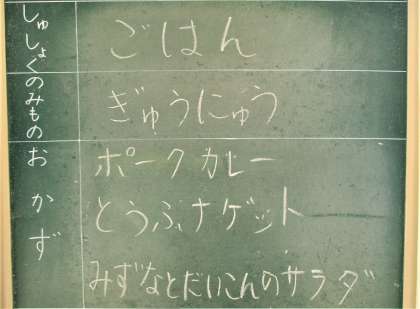 しゅしょく
ごはん
のみもの
ぎゅうにゅう
おかず
ポークカレー
とうふナゲット
みずなとだいこんのサラダ